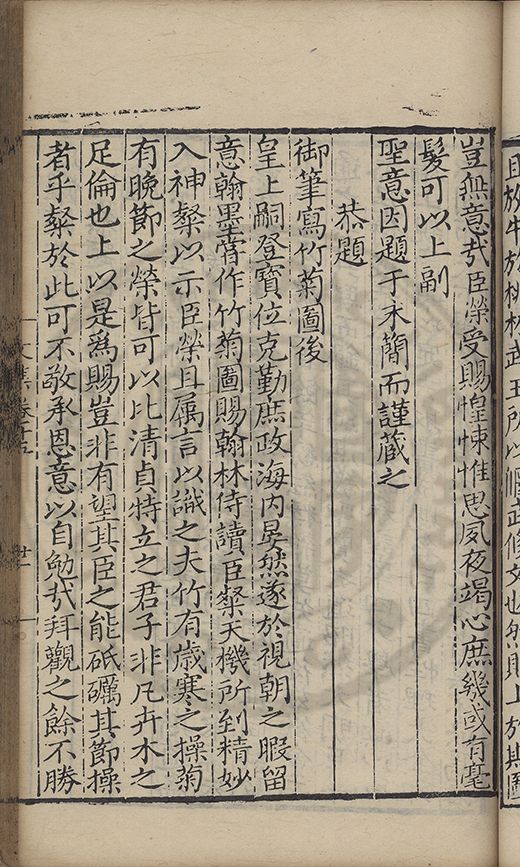 且放牛於桃林武王所以偃武修文也然則上於其圖
豈無意㢤臣榮受賜惶悚惟思夙夜竭心庶幾或有毫
髮可以上副
聖意因題于末簡而謹藏之
恭題
御筆寫竹菊圖後
皇上嗣登寶位克勤庶政海内晏然遂於視朝之暇留
意翰墨嘗作竹菊圖賜翰林侍讀臣粲天機所到精妙
入神粲以示臣榮且属言以識之夫竹有歲寒之操菊
有晚節之榮皆可以比清貞特立之君子非凡卉木之
足倫也上以是爲賜豈非有望其臣之能砥礪其節操
者乎粲於此可不敬承恩意以自勉㢤拜觀之餘不勝
文集卷十五
廿一